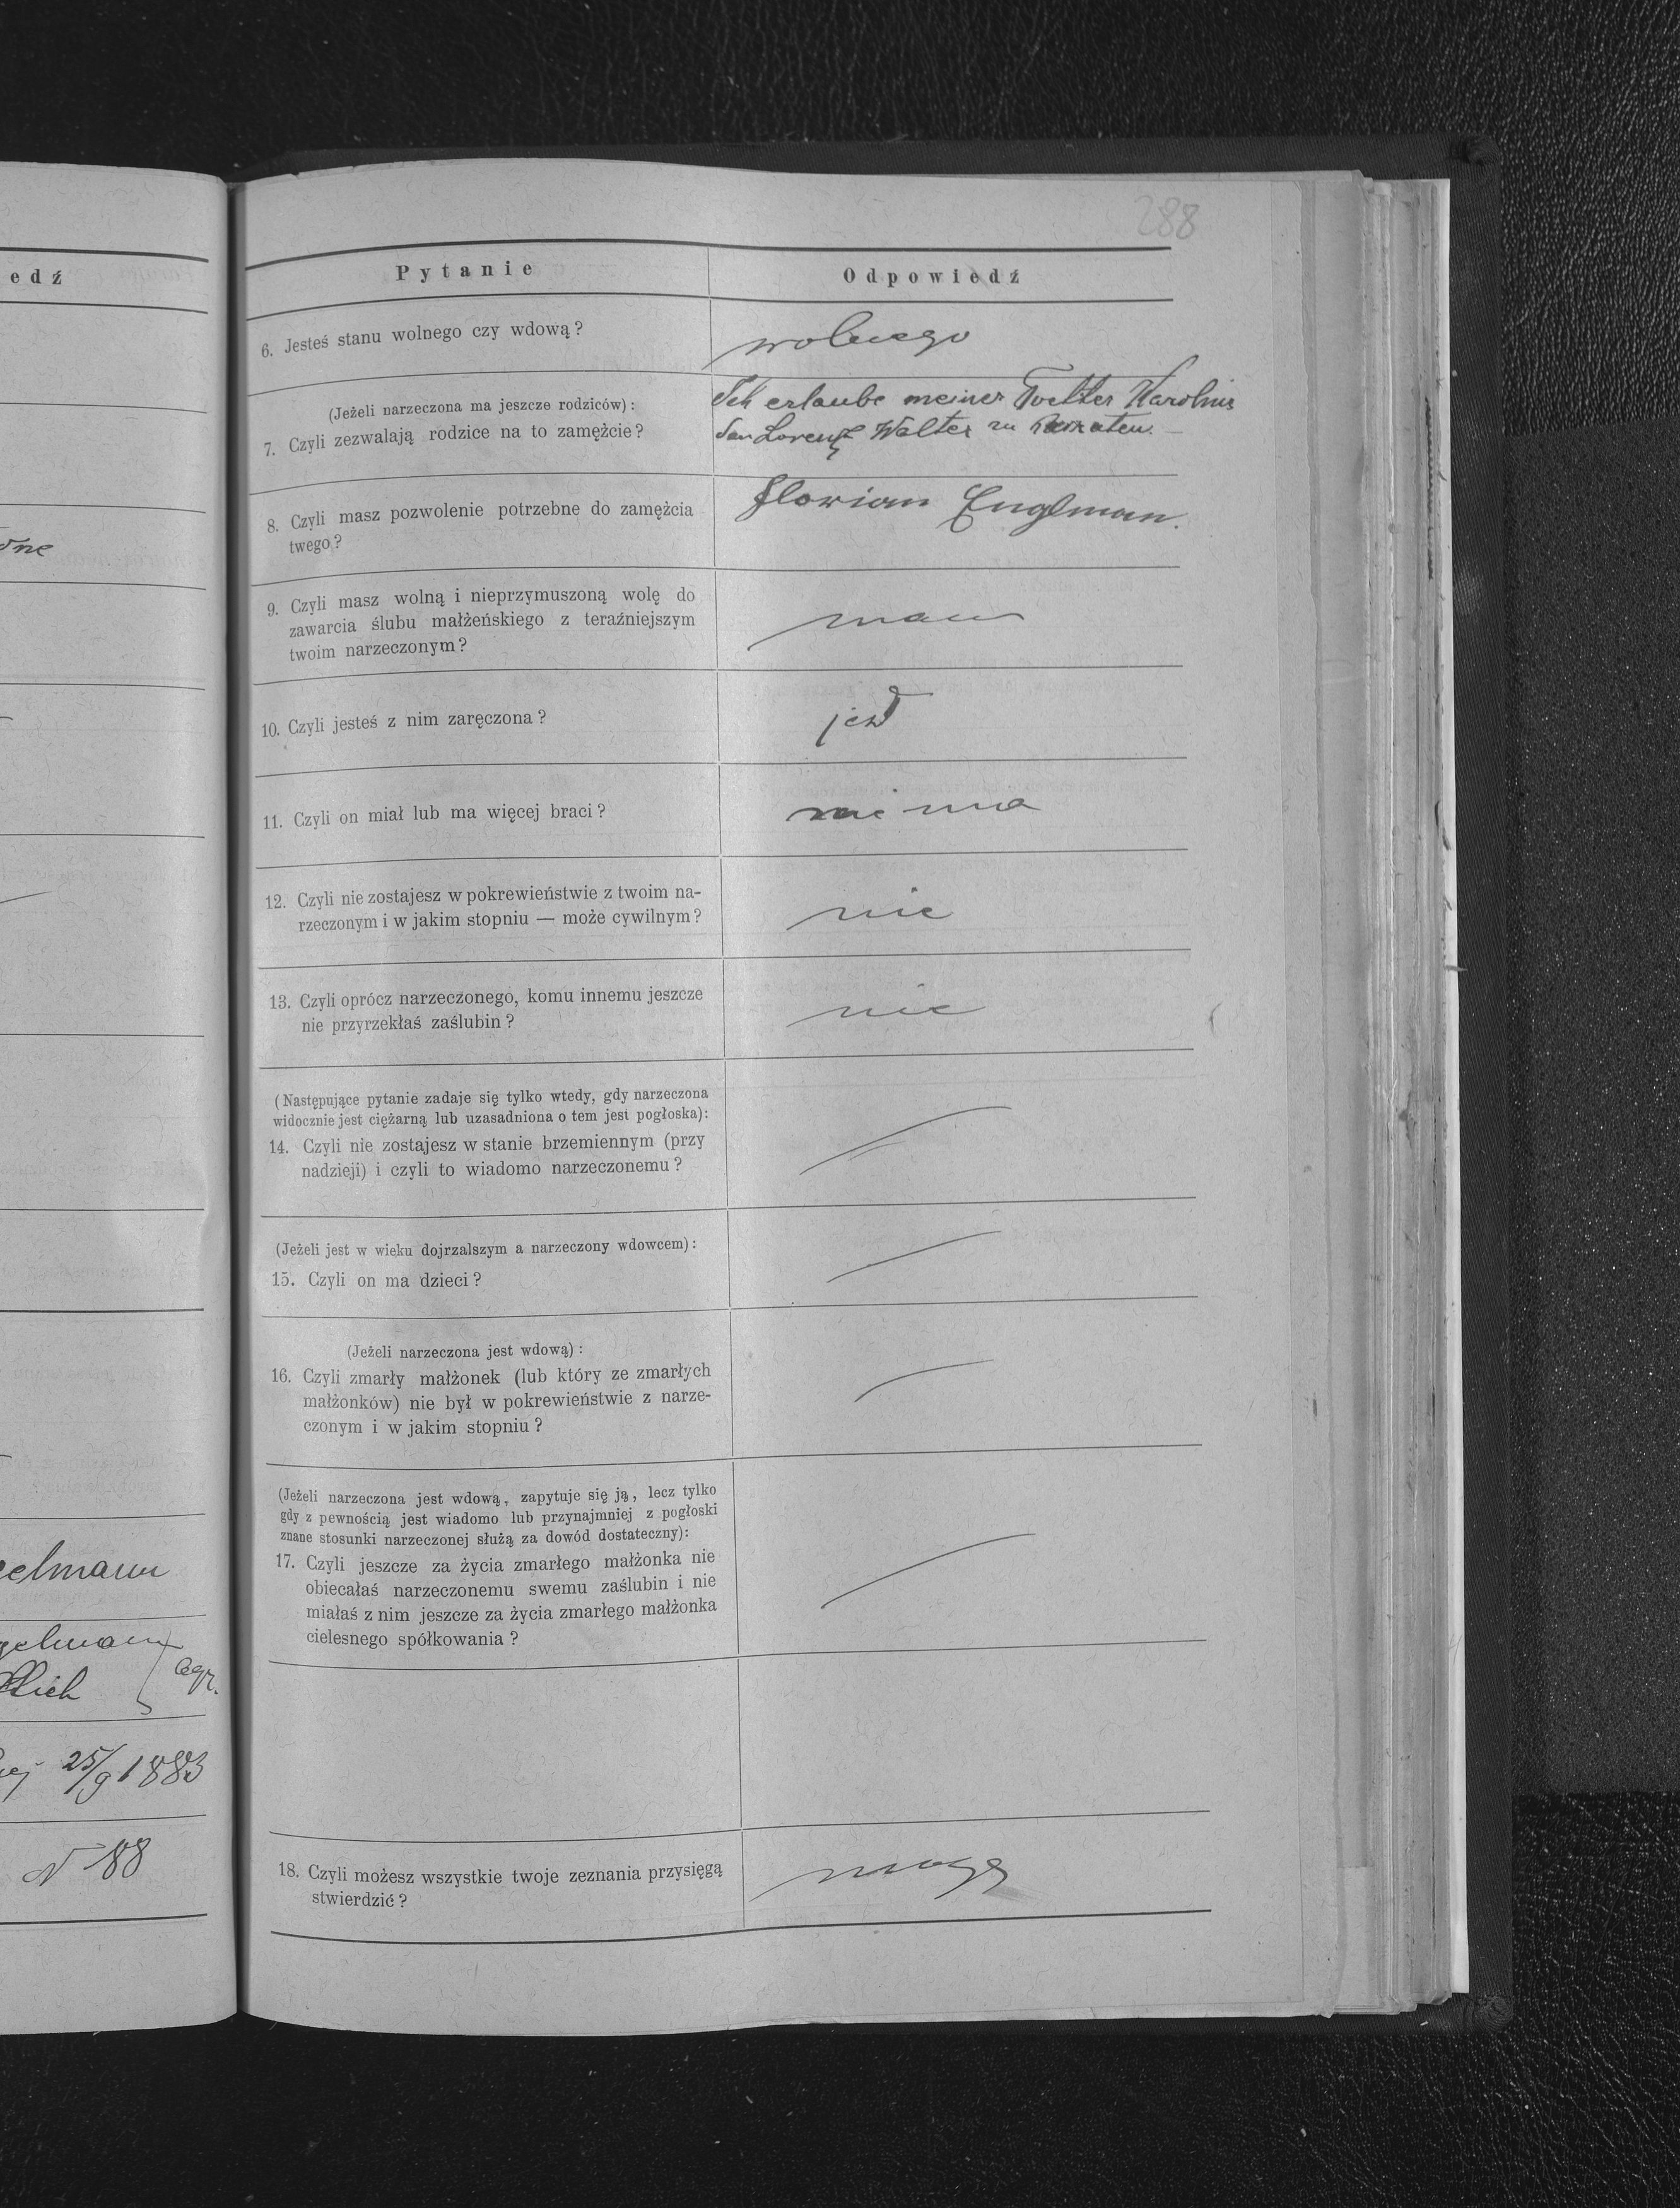 288
edź
one
elmann
gelmann
llich
agr.
ej 25/9 1883
N 188
Pytanie
Odpowiedź
6. Jesteś stanu wolnego czy wdową?
wolnego
(Jeżeli narzeczona ma jeszcze rodziców):
7. Czyli zezwalają rodzice na to zamężcie?
Ich erlaube meiner Toctter Karolina
den Lorenz Walter zu heiraten.
8. Czyli masz pozwolenie potrzebne do zamężcia
twego?
Florian Englman.
9. Czyli masz wolną i nieprzymuszoną wolę do
zawarcia ślubu małżeńskiego z teraźniejszym
twoim narzeczonym?
mam
10. Czyli jesteś z nim zaręczona?
jest
11. Czyli on miał lub ma więcej braci?
nie ma
12. Czyli nie zostajesz w pokrewieństwie z twoim na-
rzeczonym i w jakim stopniu — może cywilnym?
nie
13. Czyli oprócz narzeczonego, komu innemu jeszcze
nie przyrzekłaś zaślubin?
nie
(Następujące pytanie zadaje się tylko wtedy, gdy narzeczona
widocznie jest ciężarną lub uzasadniona o tem jest pogłoska):
14. Czyli nie zostajesz w stanie brzemiennym (przy
nadzieji) i czyli to wiadomo narzeczonemu?
(Jeżeli jest w wieku dojrzalszym a narzeczony wdowcem):
15. Czyli on ma dzieci?
(Jeżeli narzeczona jest wdową):
16. Czyli zmarły małżonek (lub który ze zmarłych
małżonków) nie był w pokrewieństwie z narze-
czonym i w jakim stopniu?
(Jeżeli narzeczona jest wdową, zapytuje się ją, lecz tylko
gdy z pewnością jest wiadomo lub przynajmniej z pogłoski
znane stosunki narzeczonej służą za dowód dostateczny):
17. Czyli jeszcze za życia zmarłego małżonka nie
obiecałaś narzeczonemu swemu zaślubin i nie
miałaś z nim jeszcze za życia zmarłego małżonka
cielesnego spółkowania?
18. Czyli możesz wszystkie twoje zeznania przysięgą
stwierdzić?
mogę